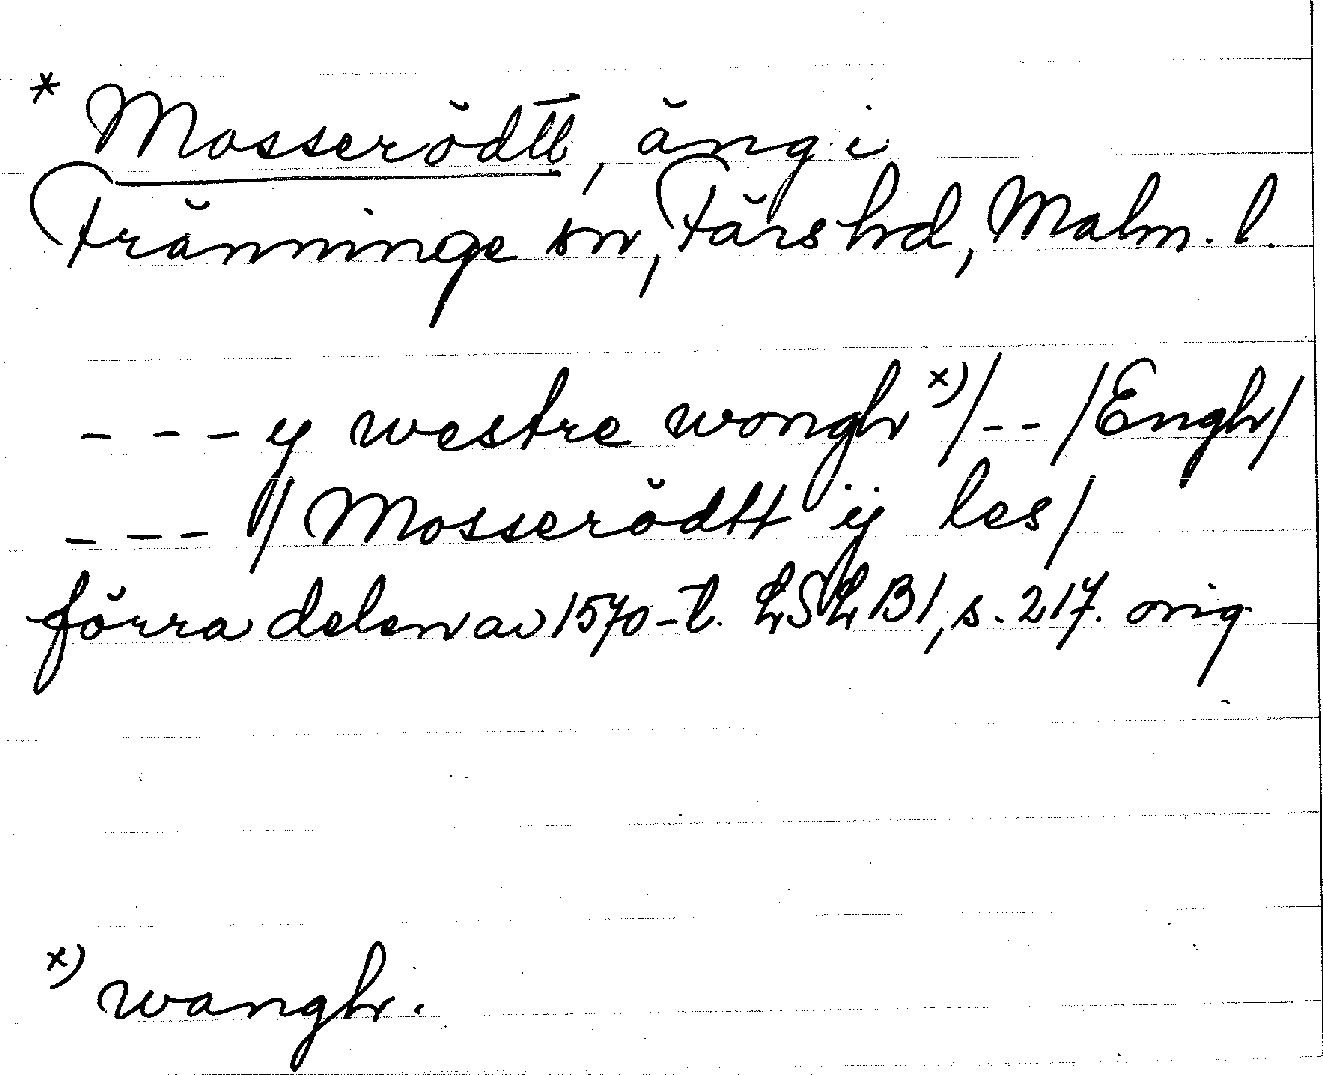 * Mosserödtt, äng i
Fränninge sn, Färs hd, Malm. l.
- - - y westre wongh x) / - - / Engh /
- - - // Mosserödtt ij les /
förra delen av 1570-t. LSLB1, s. 217. orig
x) wangh.